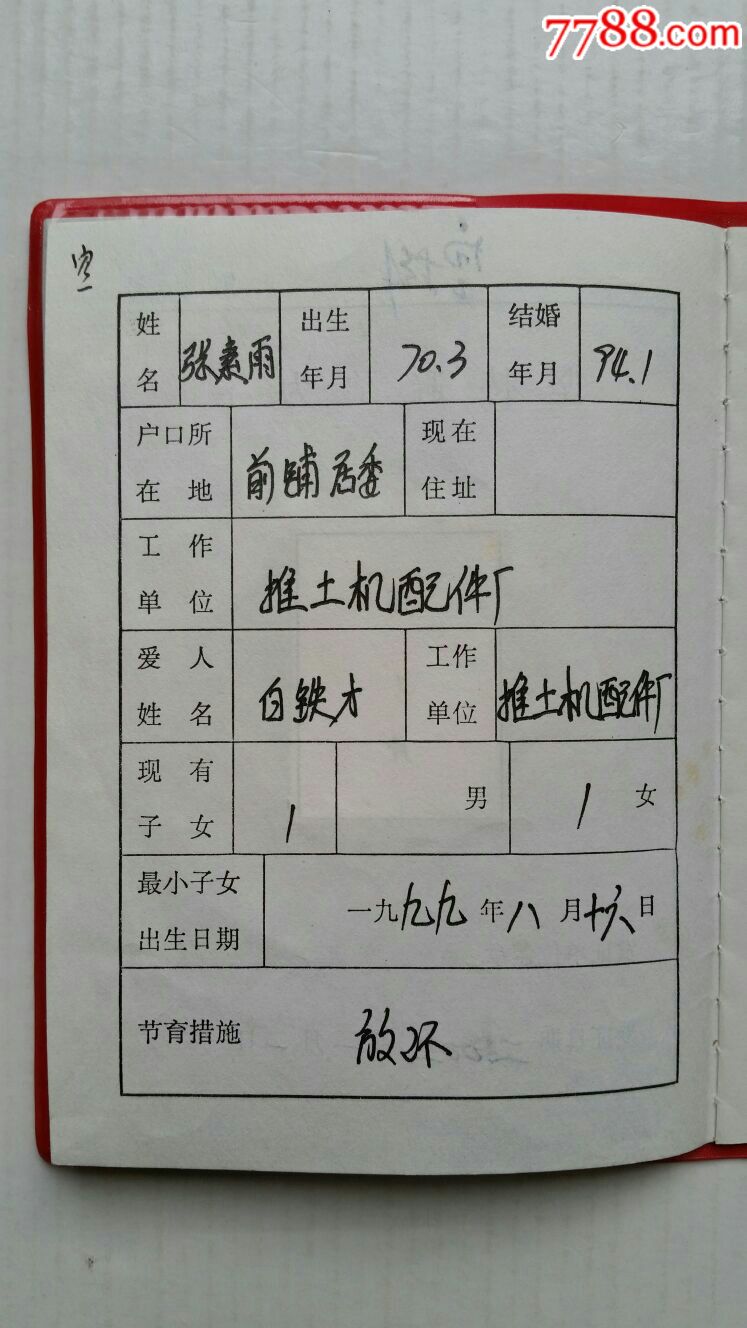 7788.com
姓名 张素雨 出生年月 70.3 结婚年月 94.1
户口所在地 前铺居委 现在住址
工作单位 推土机配件厂
爱人姓名 白铁才 工作单位 推土机配件厂
现有子女 1 男 1 女
最小子女出生日期 一九九九年八月十六日
节育措施 放环